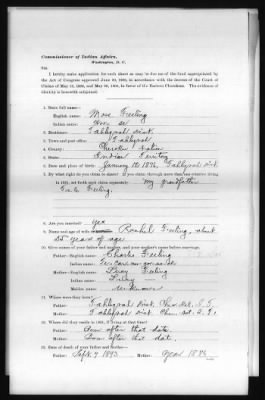 Commissioner of Indian Affairs,
Washington, D. C.
Sir:
I hereby make application for such share as may be due me of the fund appropriated by
the Act of Congress approved June 30, 1906, in accordance with the decrees of the Court of
Claims of May 18, 1905, and May 28, 1906, in favor of the Eastern Cherokees. The evidence
of identity is herewith subjoined.
1. State full name—
English name: Mose Feeling
Indian name:
2. Residence: Tahlequah Dist
3. Town and post office: Tahlequah
4. County: Cherokee Nation
5. State: Indian Territory
6. Date and place of birth: January 10 1876, Tahlequah Dist.
7. By what right do you claim to share? If you claim through more than one relative living
in 1851, set forth each claim separately: My grandfather
Feeling.
8. Are you married? yes
9. Name and age of wife Rachel Feeling, about
25 years of age
10. Give names of your father and mother, and your mother's name before marriage.
Father—English name: Charles Feeling
Indian name:
Mother—English name: Feeling
Indian name:
Maiden name: unknown
11. Where were they born?
Father: Tahlequah Dist. Cher. Nat. I. T.
Mother: Tahlequah Dist. Cher. Nat. I. T.
12. Where did they reside in 1851, if living at that time?
Father: Born after that date.
Mother: Born after that date.
13. Date of death of your father and mother—
Father: Sept. 7 1893 Mother: Year